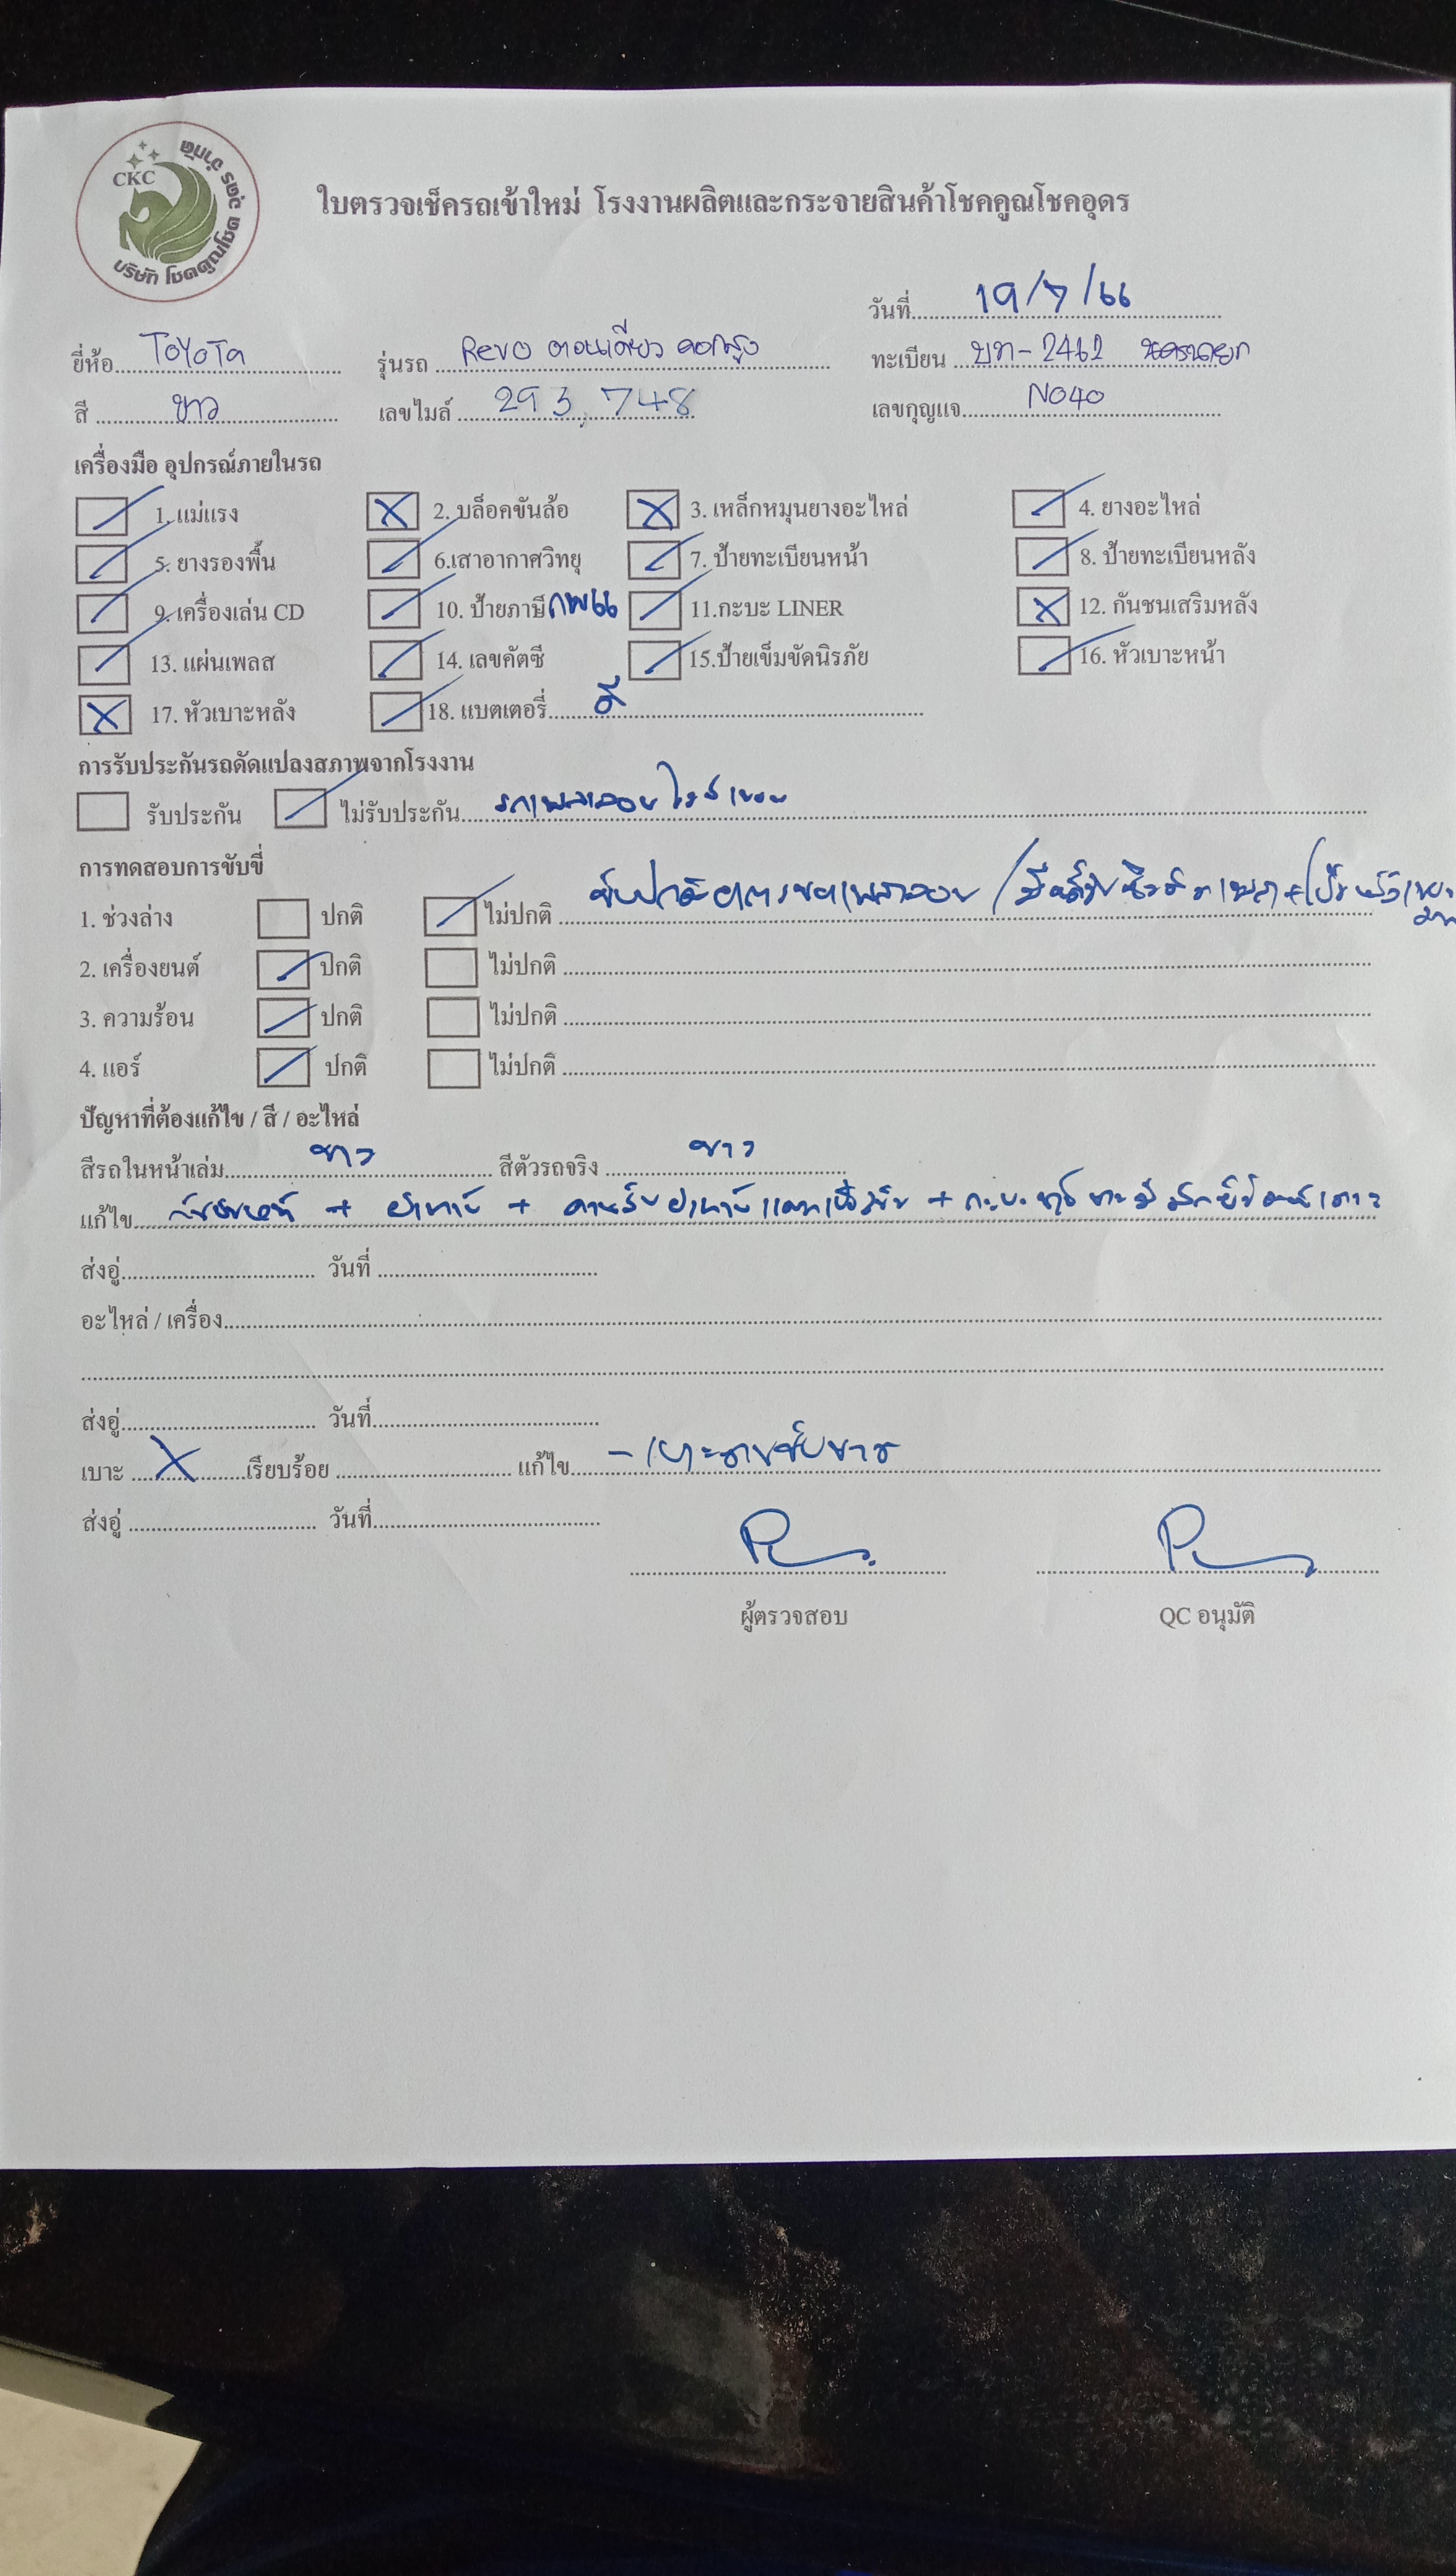 CKC
บริษัท โชคคูณโชค ดูดร จำกัด
ใบตรวจเช็ครถเข้าใหม่ โรงงานผลิตและกระจายสินค้าโชคคูณโชคอุดร
วันที่ 19/7/66
ยี่ห้อ ToYoTa รุ่นรถ Revo ตอนเดียว ทะเบียน บท-2462 นครนายก
สี ขาว เลขไมล์ 293,748 เลขกุญแจ NO40
เครื่องมือ อุปกรณ์ภายในรถ
1. แม่แรง 2. บล็อคขันล้อ 3. เหล็กหมุนยางอะไหล่ 4. ยางอะไหล่
5. ยางรองพื้น 6.เสาอากาศวิทยุ 7. ป้ายทะเบียนหน้า 8. ป้ายทะเบียนหลัง
9. เครื่องเล่น CD 10. ป้ายภาษี กพ66 11.กะบะ LINER 12. กันชนเสริมหลัง
13. แผ่นเพลส 14. เลขคัตซี 15.ป้ายเข็มขัดนิรภัย 16. หัวเบาะหน้า
17. หัวเบาะหลัง 18. แบตเตอรี่ ดี
การรับประกันรถดัดแปลงสภาพจากโรงงาน
รับประกัน ไม่รับประกัน รถเพลาลอย
การทดสอบการขับขี่
1. ช่วงล่าง ปกติ ไม่ปกติ
2. เครื่องยนต์ ปกติ ไม่ปกติ
3. ความร้อน ปกติ ไม่ปกติ
4. แอร์ ปกติ ไม่ปกติ
ปัญหาที่ต้องแก้ไข / สี / อะไหล่
สีรถในหน้าเล่ม ขาว สีตัวรถจริง ขาว
แก้ไข
ส่งอู่ วันที่
อะไหล่ / เครื่อง
ส่งอู่ วันที่
เบาะ X เรียบร้อย แก้ไข
ส่งอู่ วันที่
ผู้ตรวจสอบ QC อนุมัติ